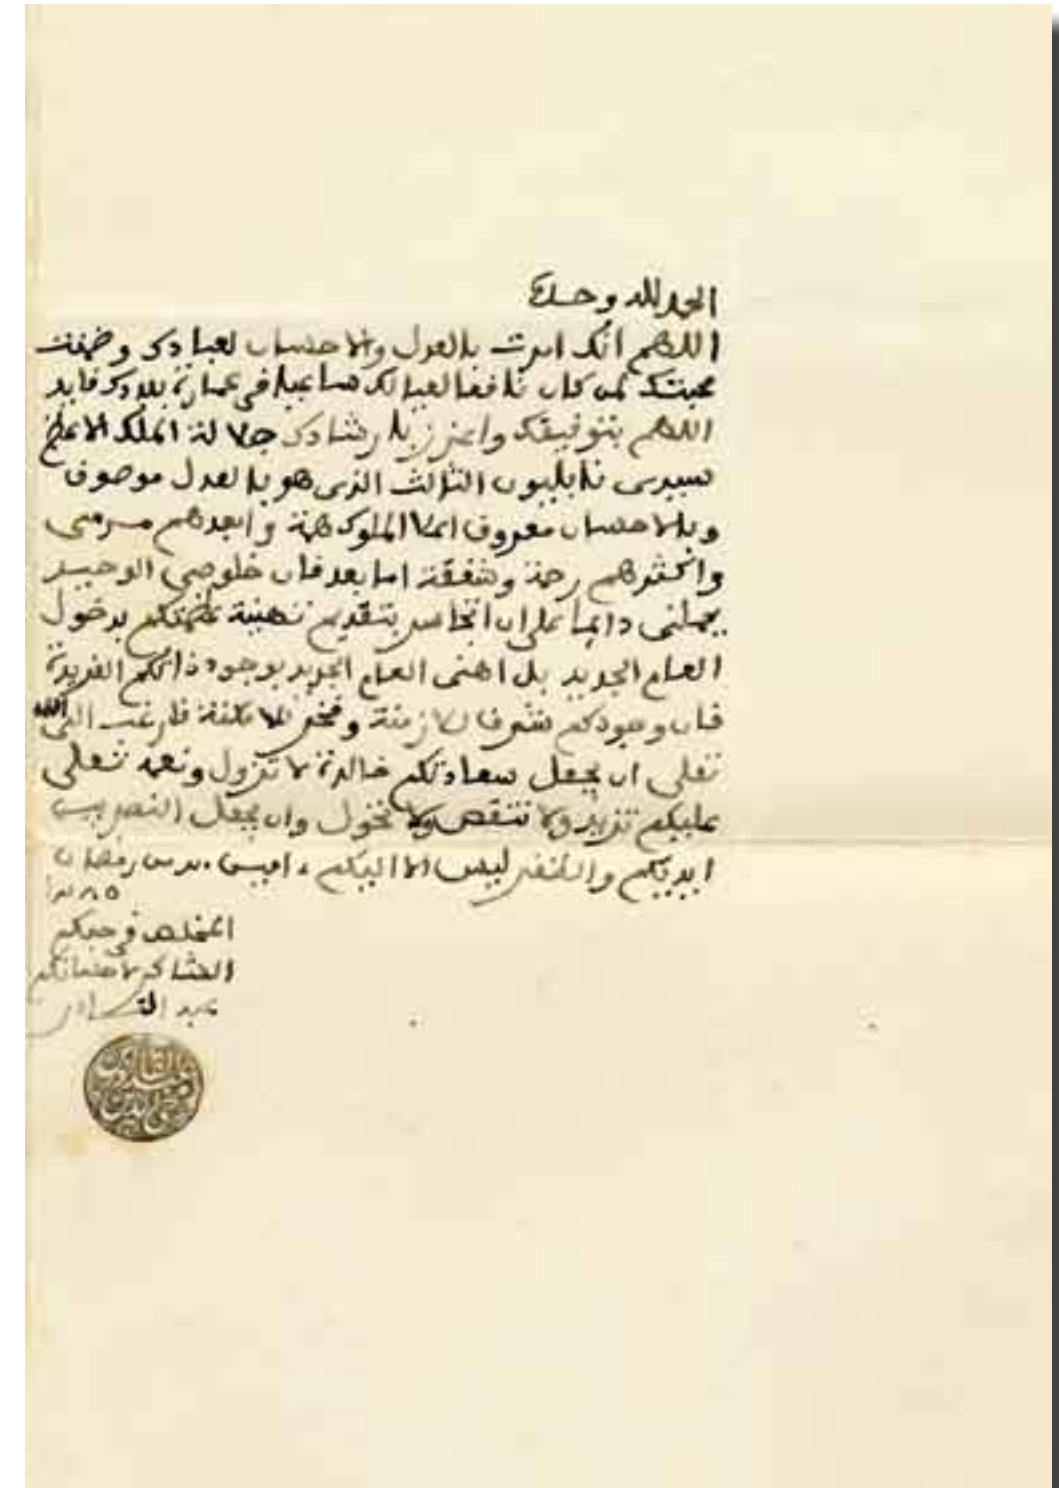 الحمد لله وحده
اللهم انك امرت بالعدل والاحسان لعبادك وضمنت
محبتك لمن كان نافعا لعيالك ساعيا في عمارة بلادك فايد
اللهم بتوفيقك واعزز بارشادك جلالة الملك الاعظم
سيدي نابليون الثالث الذي هو بالعدل موصوف
وبالاحسان معروف اعلا الملوك همة وابعدهم مرمى
واكثرهم رحمة وشفقة اما بعد فان خلوصي الوحيد
يحملني دايما على ان اتجاسر بتقديم تهنية عظمتكم بدخول
العام الجديد بل اهني العام الجديد بوجود ذاتكم الفريدة
فان وجودكم شرف الازمنة وفخر الامكنة فارغب الى الله
تعلى ان يجعل سعادتكم خالدة لا تزول ونعمه تعلى
عليكم تزيد ولا تنقص ولا تحول وان يجعل النصر بيـن
ايديكم والسفر ليس الا اليكم امين رمضان
المخلص في حبكم
الشاكر لاحسانكم
عبد القادر
عبد القادر بن محيي الدين